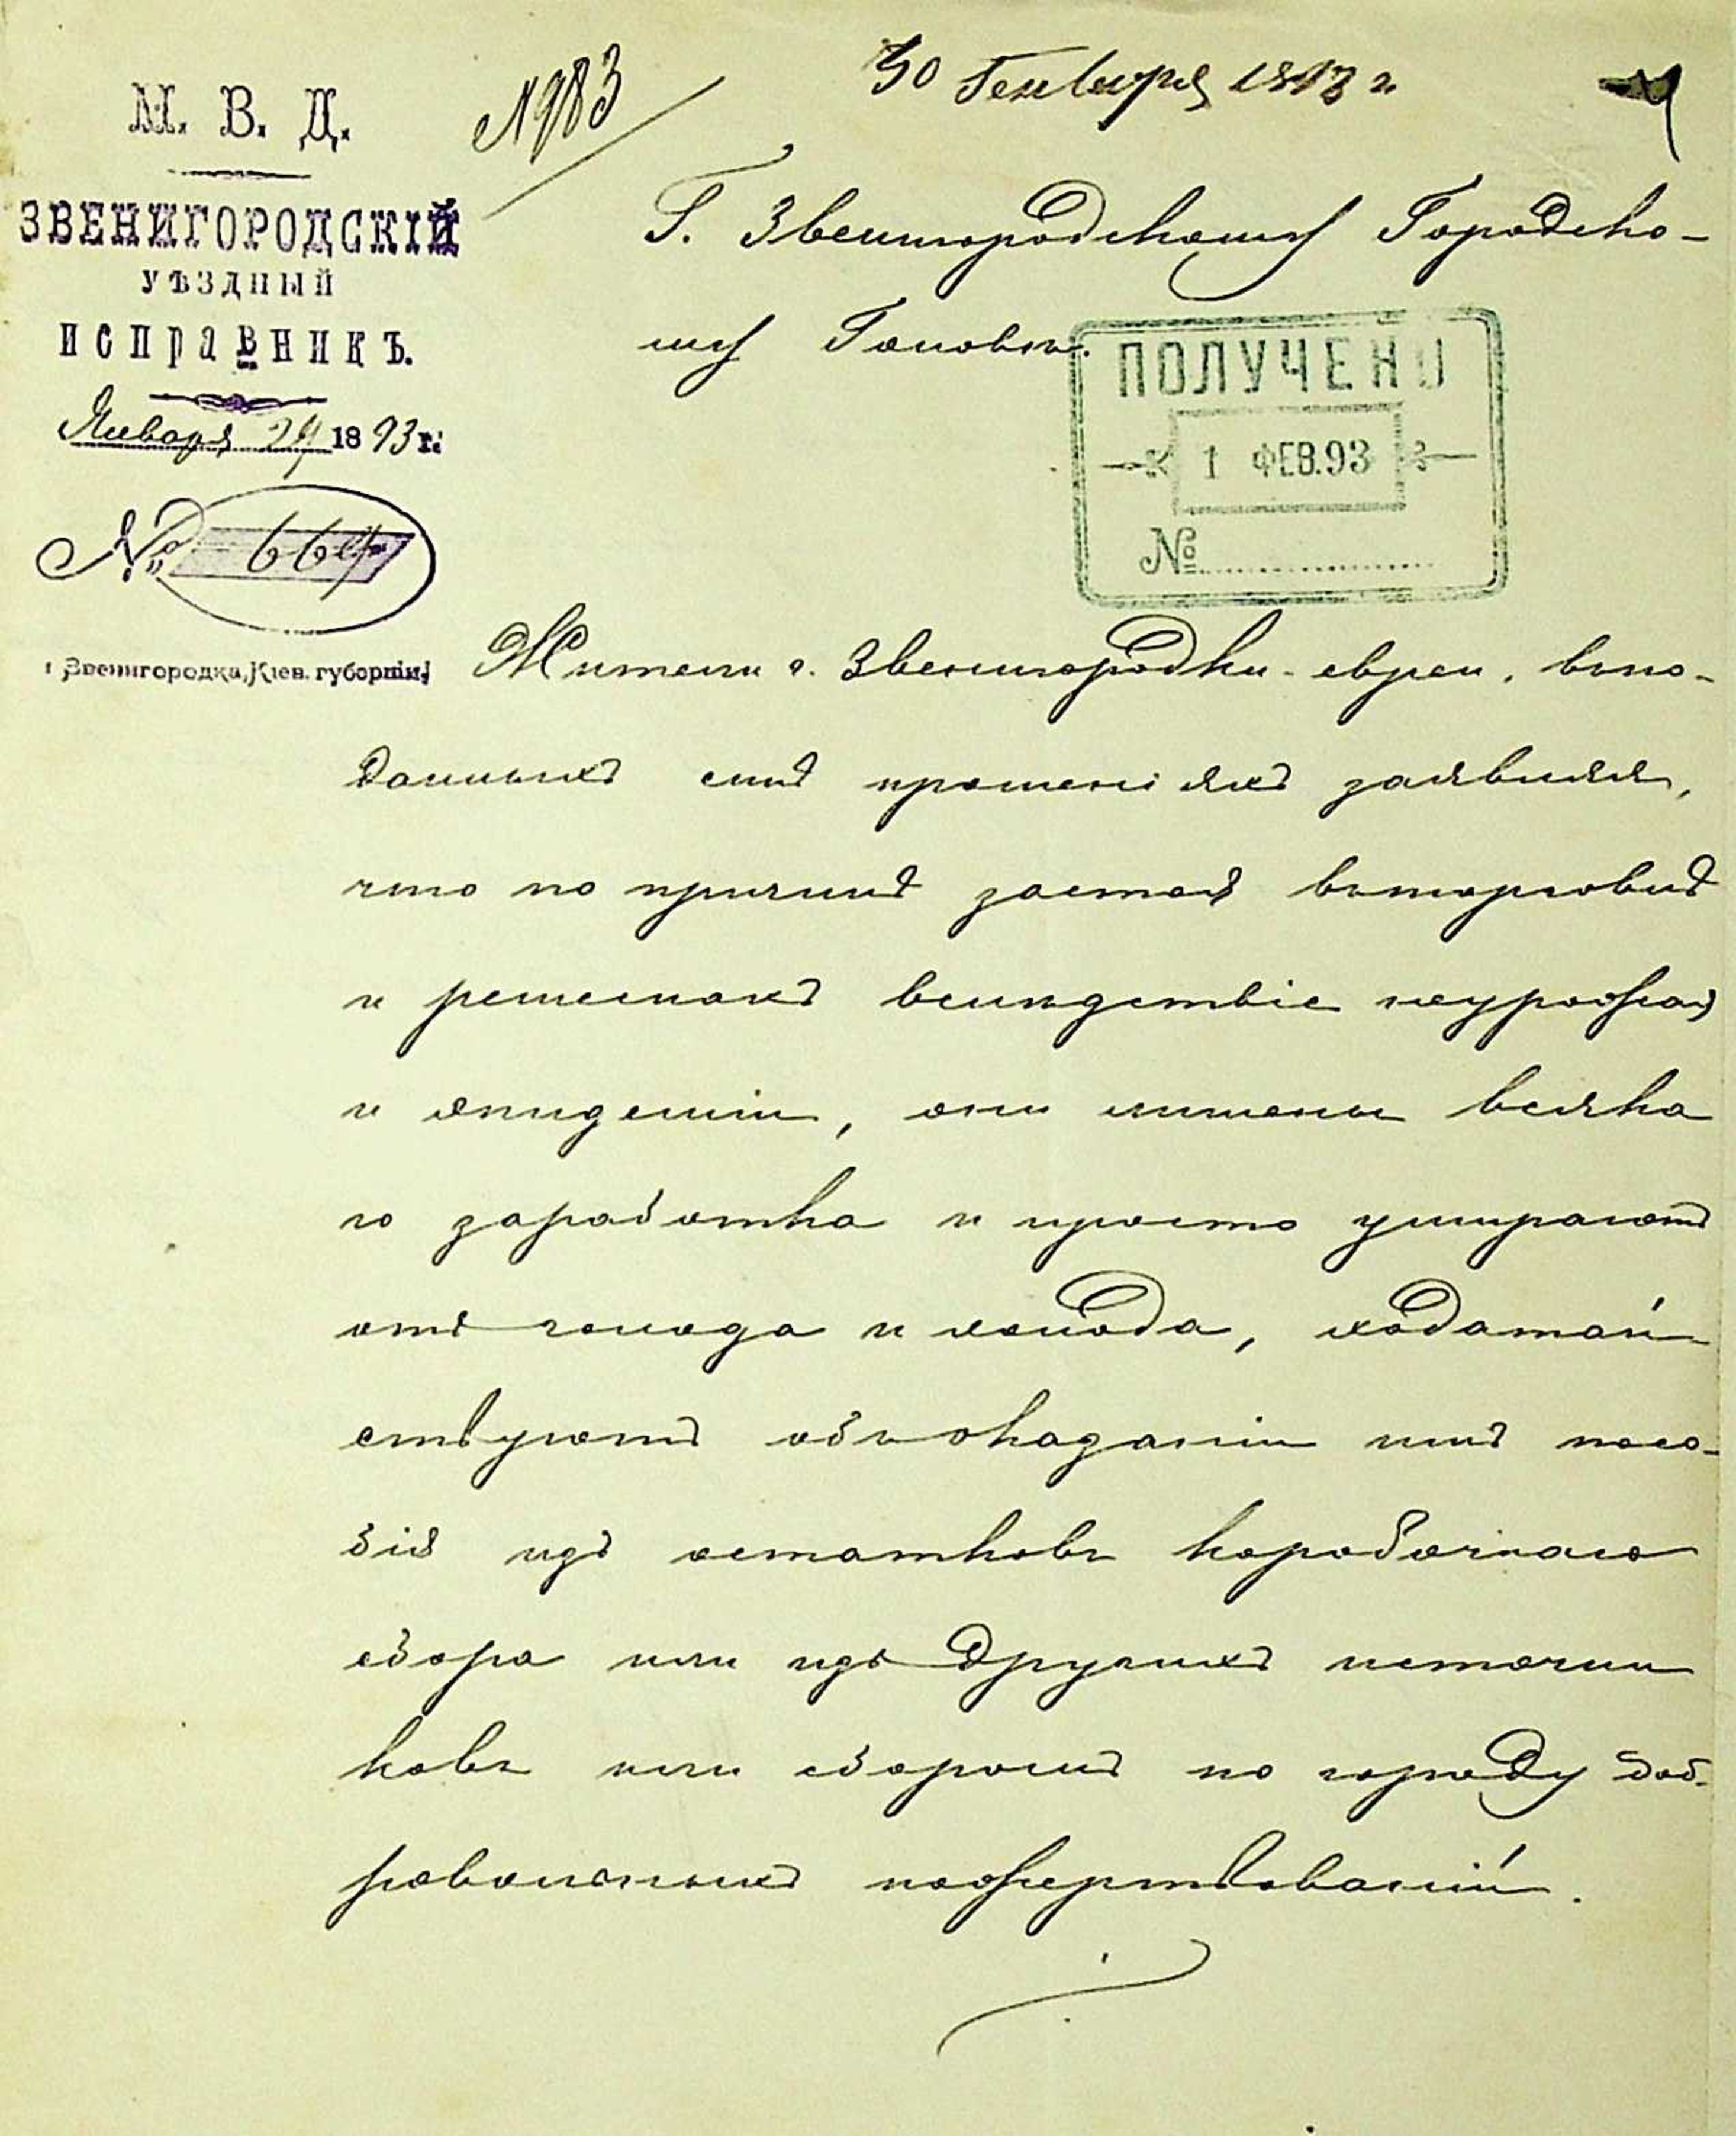 М. В. Д.
ЗВЕНИГОРОДСКІЙ
УѢЗДНЫЙ
ИСПРАВНИКЪ.
Января 29 1893 г.
№ 664
г. Звенигородка, Кіев. губерніи
N 983
30 Генваря 1893 г.
Г. Звенигородскому Городско-
му Головѣ.
ПОЛУЧЕНО
1 ФЕВ.93
№
Жители г. Звенигородки - евреи, впо-
данныхъ мнѣ прошеніяхъ заявляя,
что по причинѣ застоя вторговлѣ
и ремеслахъ вслѣдствіе неурожая
и эпидеміи, они лишены всяка
го заработка и просто умираютъ
отъ голода и холода, ходатай
ствуютъ объ оказаніи имъ посо-
бія изъ остатковъ коробочнаго
сбора или изъ другихъ источни
ковъ или сборомъ по городу доб-
ровольныхъ пожертвованій.